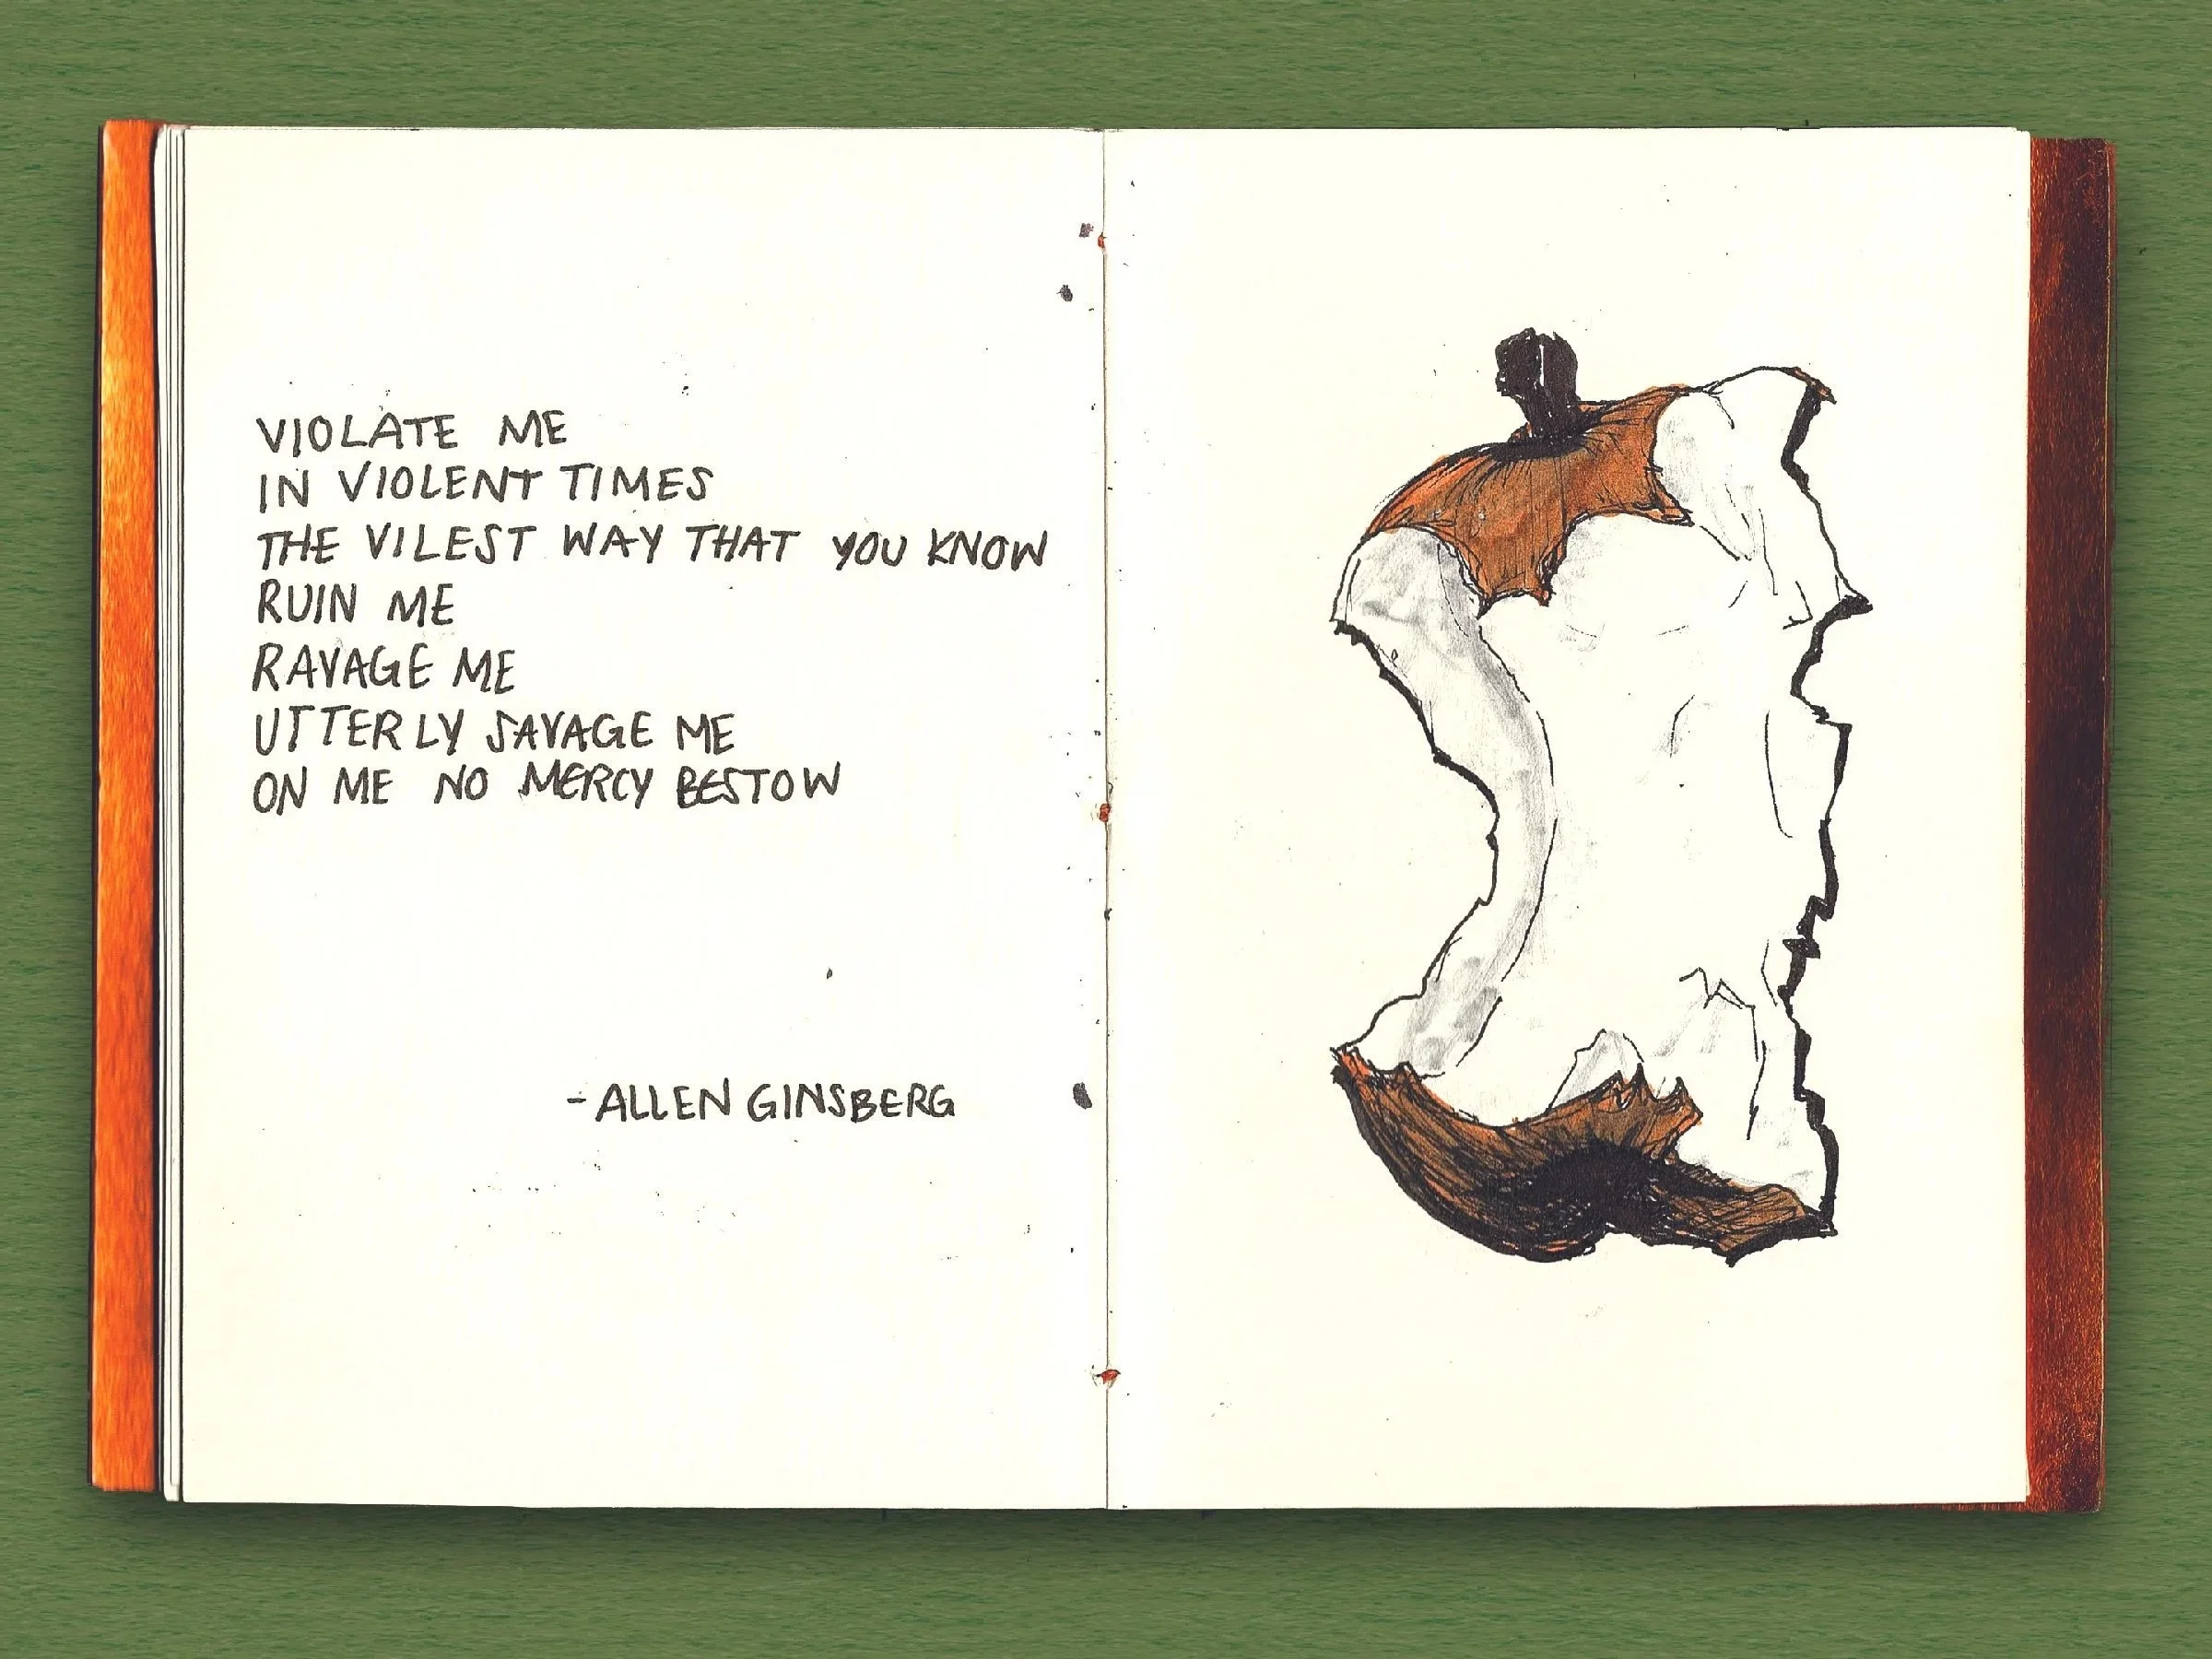 VIOLATE ME
IN VIOLENT TIMES
THE VILEST WAY THAT YOU KNOW
RUIN ME
RAVAGE ME
UTTERLY SAVAGE ME
ON ME NO MERCY BESTOW
-ALLEN GINSBERG